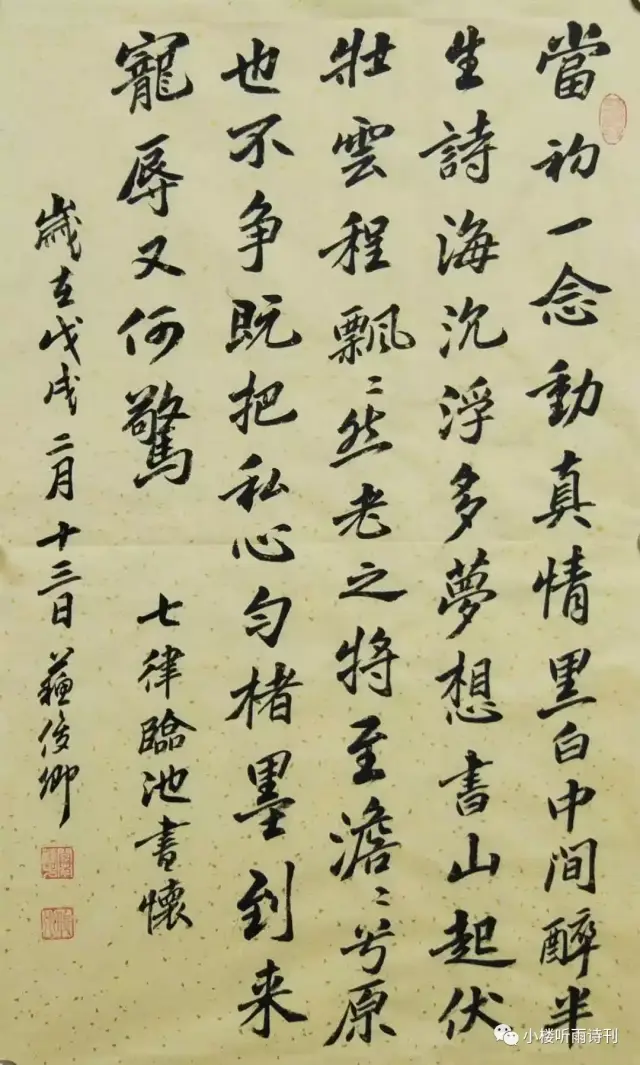 當初一念動真情黑白中间醉半
生詩海沉浮多夢想書山起伏
壯雲程飄〻然老之將至澹〻兮原
也不争既把私心匀楮墨到来
寵辱又何驚
七律臨池書懷
歲在戊戌二月十三日蘇俊卿
小楼听雨诗刊